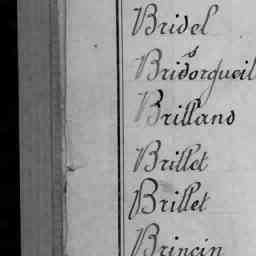 Bridel
Bridorgueil
Brilland
Brillet
Brillet
Brincin